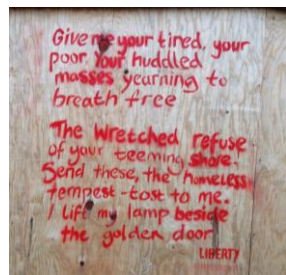 Give me your tired, your
poor. Your huddled
masses yearning to
breath free
The Wretched refuse
of your teeming shore.
Send these, the homeless
tempest-tost to me.
I lift my lamp beside
the golden door
LIBERTY